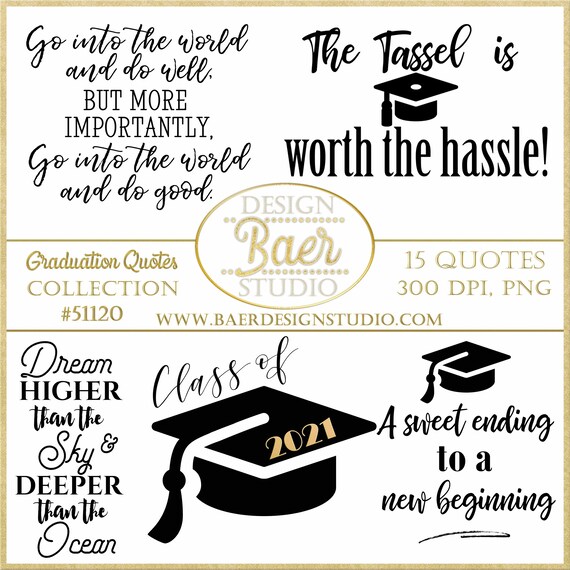 Go into the world
and do well,
BUT MORE
IMPORTANTLY,
Go into the world
and do good.
The Tassel is
worth the hassle!
DESIGN
Baer
STUDIO
Graduation Quotes
COLLECTION
#51120
15 QUOTES
300 DPI, PNG
WWW.BAERDESIGNSTUDIO.COM
Dream
HIGHER
than the
Sky &
DEEPER
than the
Ocean
Class of
2021
A sweet ending
to a
new beginning